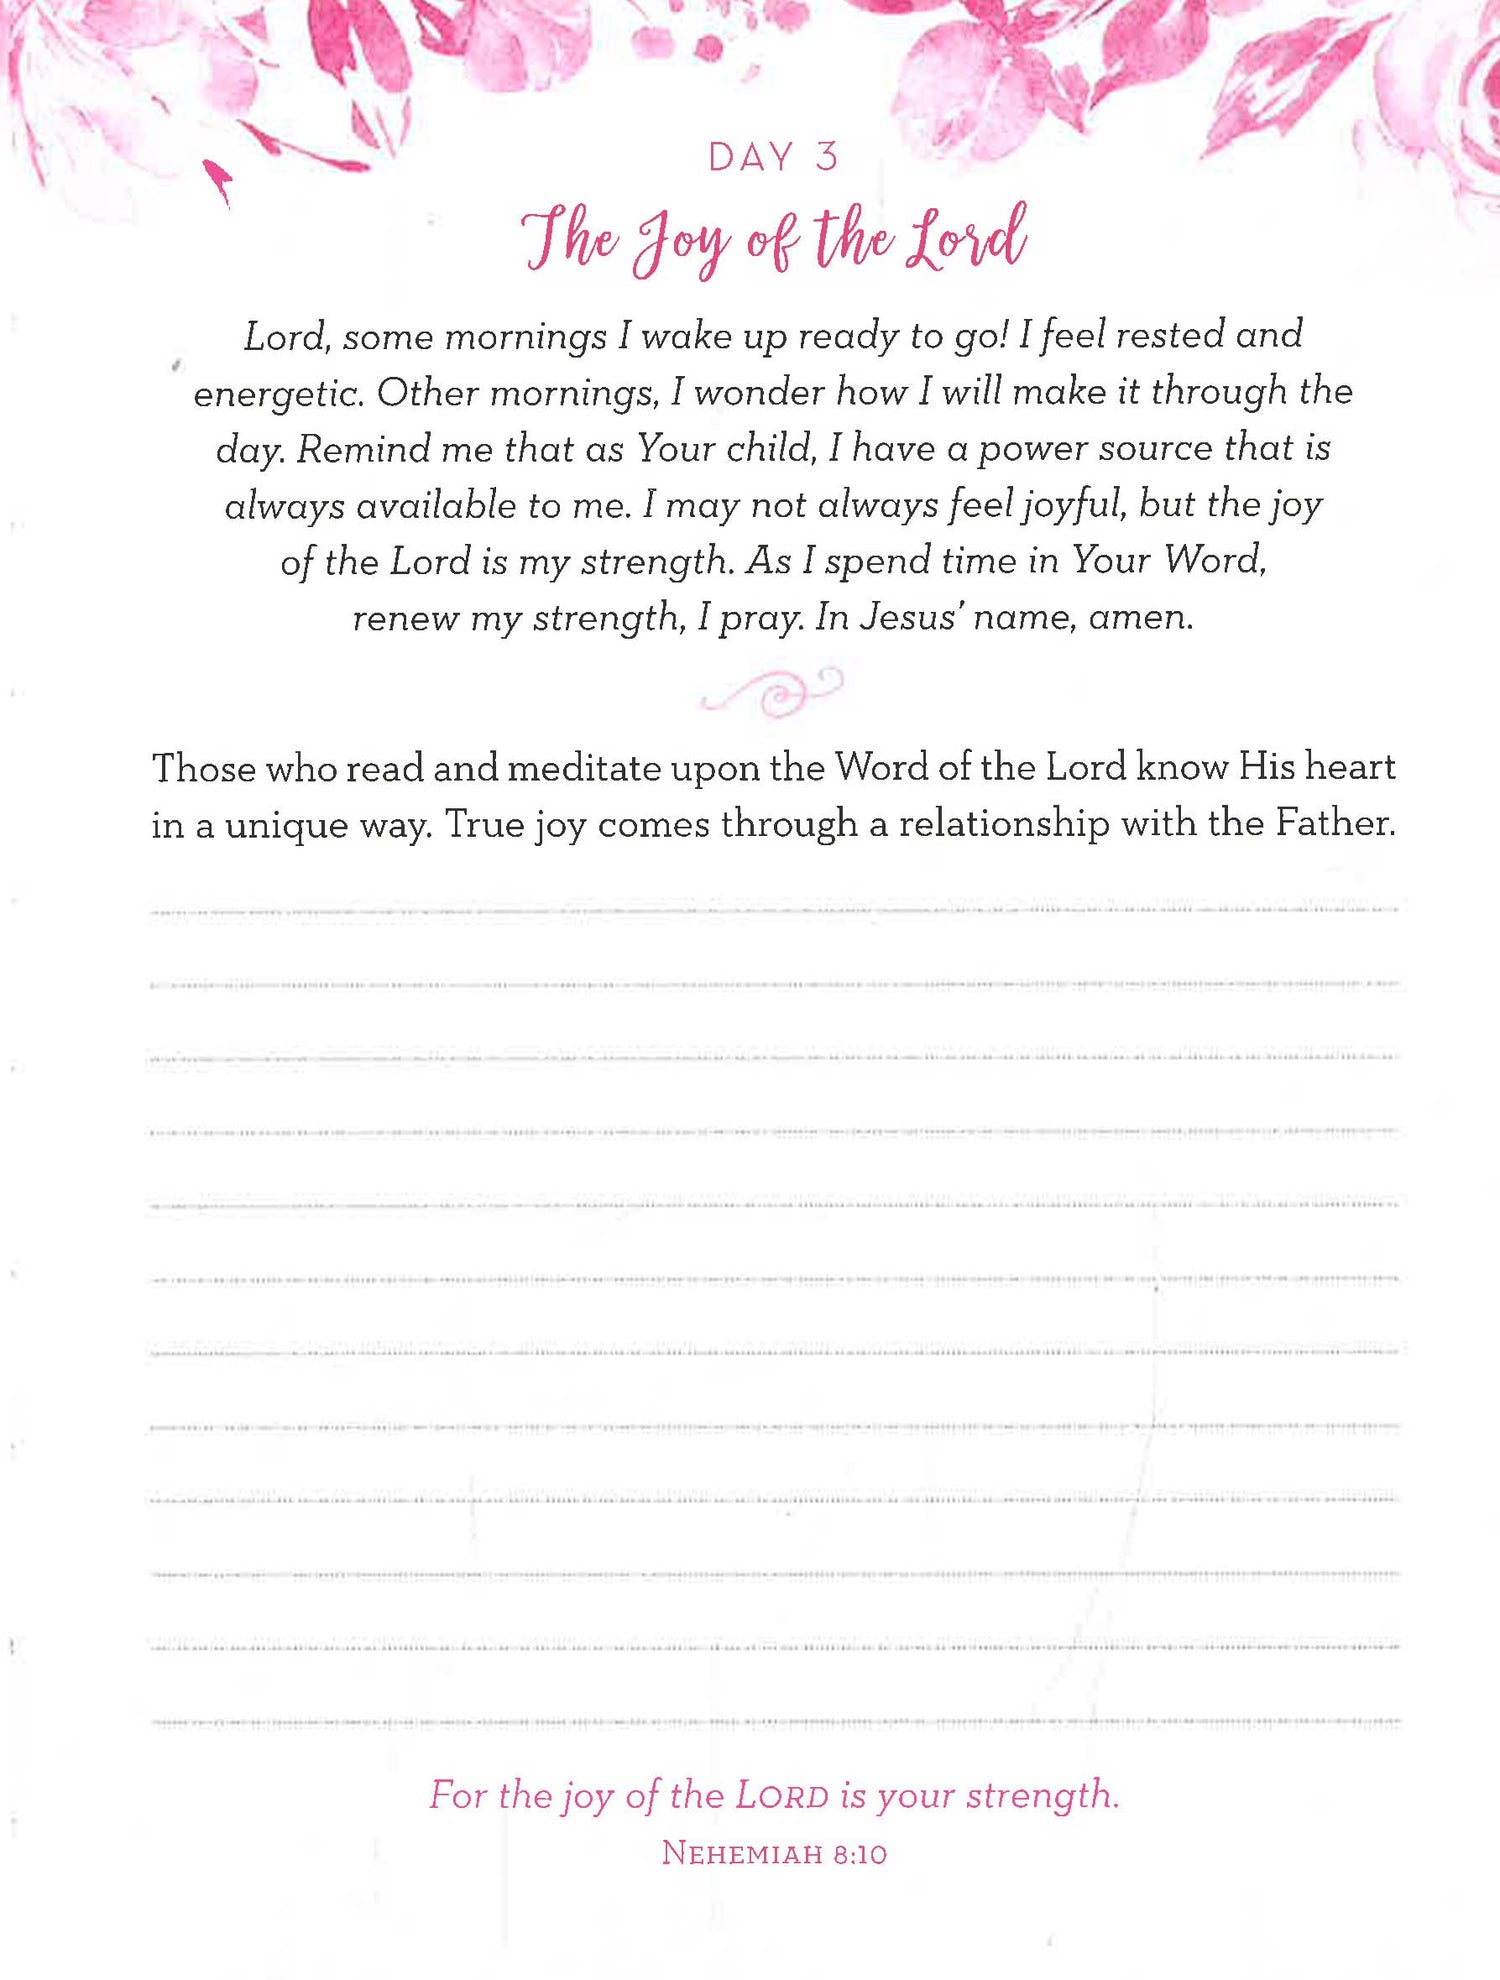 DAY 3
The Joy of the Lord
Lord, some mornings I wake up ready to go! I feel rested and
energetic. Other mornings, I wonder how I will make it through the
day. Remind me that as Your child, I have a power source that is
always available to me. I may not always feel joyful, but the joy
of the Lord is my strength. As I spend time in Your Word,
renew my strength, I pray. In Jesus' name, amen.
Those who read and meditate upon the Word of the Lord know His heart
in a unique way. True joy comes through a relationship with the Father.
For the joy of the LORD is your strength.
NEHEMIAH 8:10